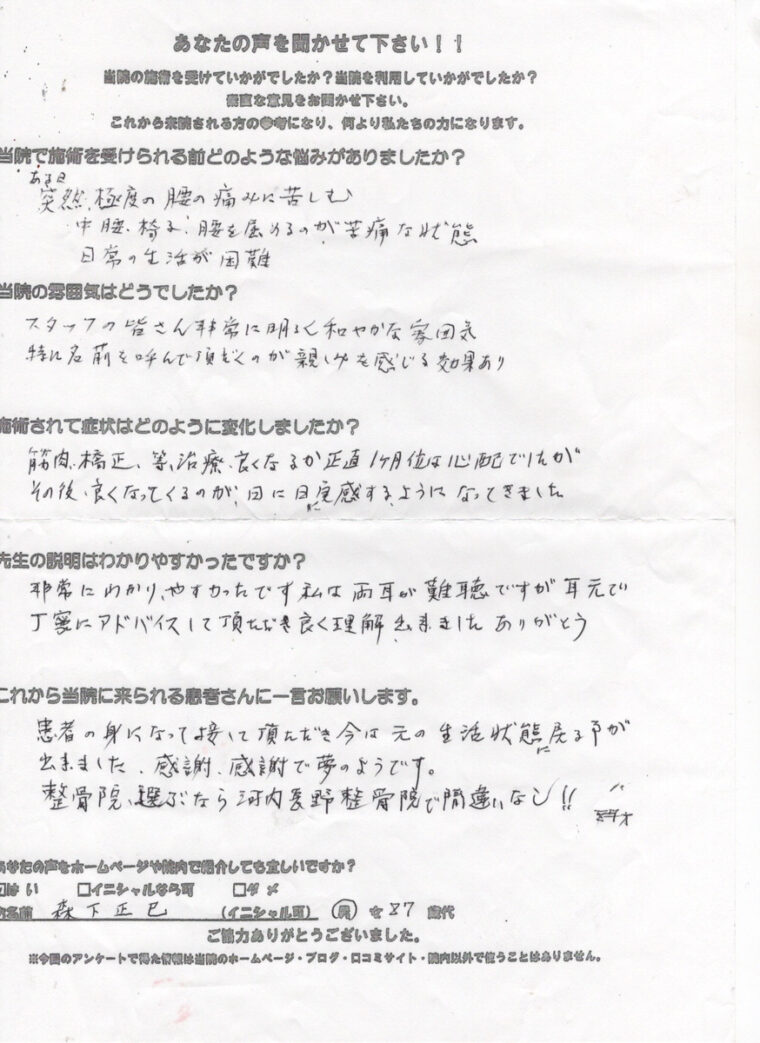 あなたの声を聞かせて下さい！！
当院の施術を受けていかがでしたか？当院を利用していかがでしたか？
素直な意見をお聞かせ下さい。
これから来院される方の参考になり、何より私たちの力になります。
当院で施術を受けられる前どのような悩みがありましたか？
ある日
突然、極度の腰の痛みに苦しむ
中腰、椅子、腰を屈めるのが苦痛な状態
日常の生活が困難
当院の雰囲気はどうでしたか？
スタッフの皆さん非常に明るく和やかな雰囲気
特に名前を呼んで頂だくのが親しみを感じる効果あり
施術されて症状はどのように変化しましたか？
筋肉、橋正、等、治療、良くなるか正直1ヶ月位は心配でしたが
その後、良くなってくるのが、日に日に実感する、ようになってきました
先生の説明はわかりやすかったですか？
非常にわかり、やすかったです私は両耳が難聴ですが耳元で
丁寧にアドバイスして頂ただき良く理解出来ましたありがとう
これから当院に来られる患者さんに一言お願いします。
患者の身になって接して頂ただき今は元の生活状態に戻る事が
出来ました、感謝、感謝で夢のようです。
整骨院、選ぶなら河内長野整骨院で間違いなし!!
あなたの声をホームページや院内で紹介しても宜しいですか？
はい □イニシャルなら可 □ダメ
お名前 森下正巳 (イニシャル可) 男 女 87 歳代
ご協力ありがとうございました。
※今回のアンケートで得た情報は当院のホームページ・ブログ・口コミサイト・院内以外で使うことはありません。